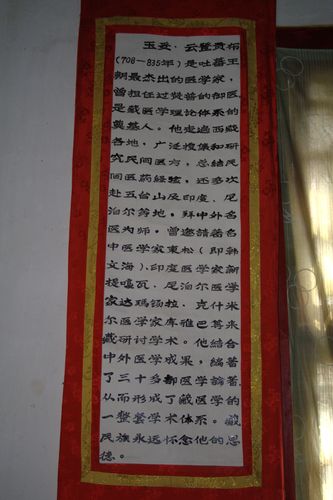 玉妥·云登贡布
(708—835年)是吐蕃王
朝最杰出的医学家,
曾担任过赞普的御医,
是藏医学理论体系的
奠基人。他走遍西藏
各地,广泛搜集和研
究民间医方,总结民
间医药经验,还多次
赴五台山及印度、尼
泊尔等地。拜中外名
医为师。曾邀請著名
中医学家東松(即韩
文海)、印度医学家新
提嘎瓦、尼泊尔医学
家达玛锡拉、克什米
尔医学家库雅巴等来
藏研讨学术。他結合
中外医学成果,編著
了三十多部医学論著,
从而形成了藏医学的
一整套学术体系。藏
民族永远怀念他的恩
德。